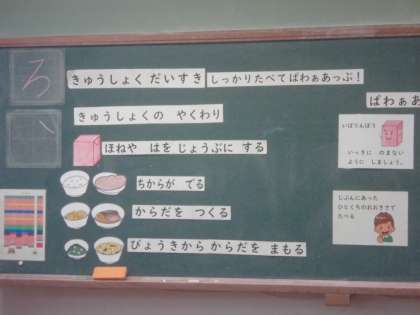 ろ
きゅうしょく だいすき
しっかりたべてぱわぁあっぷ!
ぱわぁあ
きゅうしょくの やくわり
ほねや はを じょうぶに する
ちからが でる
からだを つくる
びょうきから からだを まもる
いっきに のまない
ように しましょう。
じぶんにあった
ひとくちのおおきさで
たべる